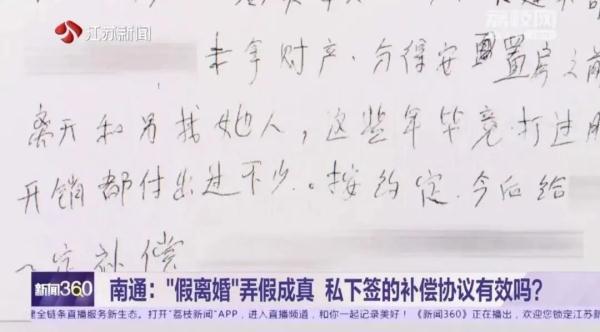 江苏新闻
荔枝网
未拿财产,分得安置房之前
离开和另找她人,这些年毕竟打过
开销都付出过不少。按约定,今后给
一定补偿
新闻360
南通:"假离婚"弄假成真 私下签的补偿协议有效吗?
全链条直播服务新生态。打开"荔枝新闻"APP,进入直播频道,和你一起记录美好! 《新闻360》正在播出,欢迎您锁定江苏新